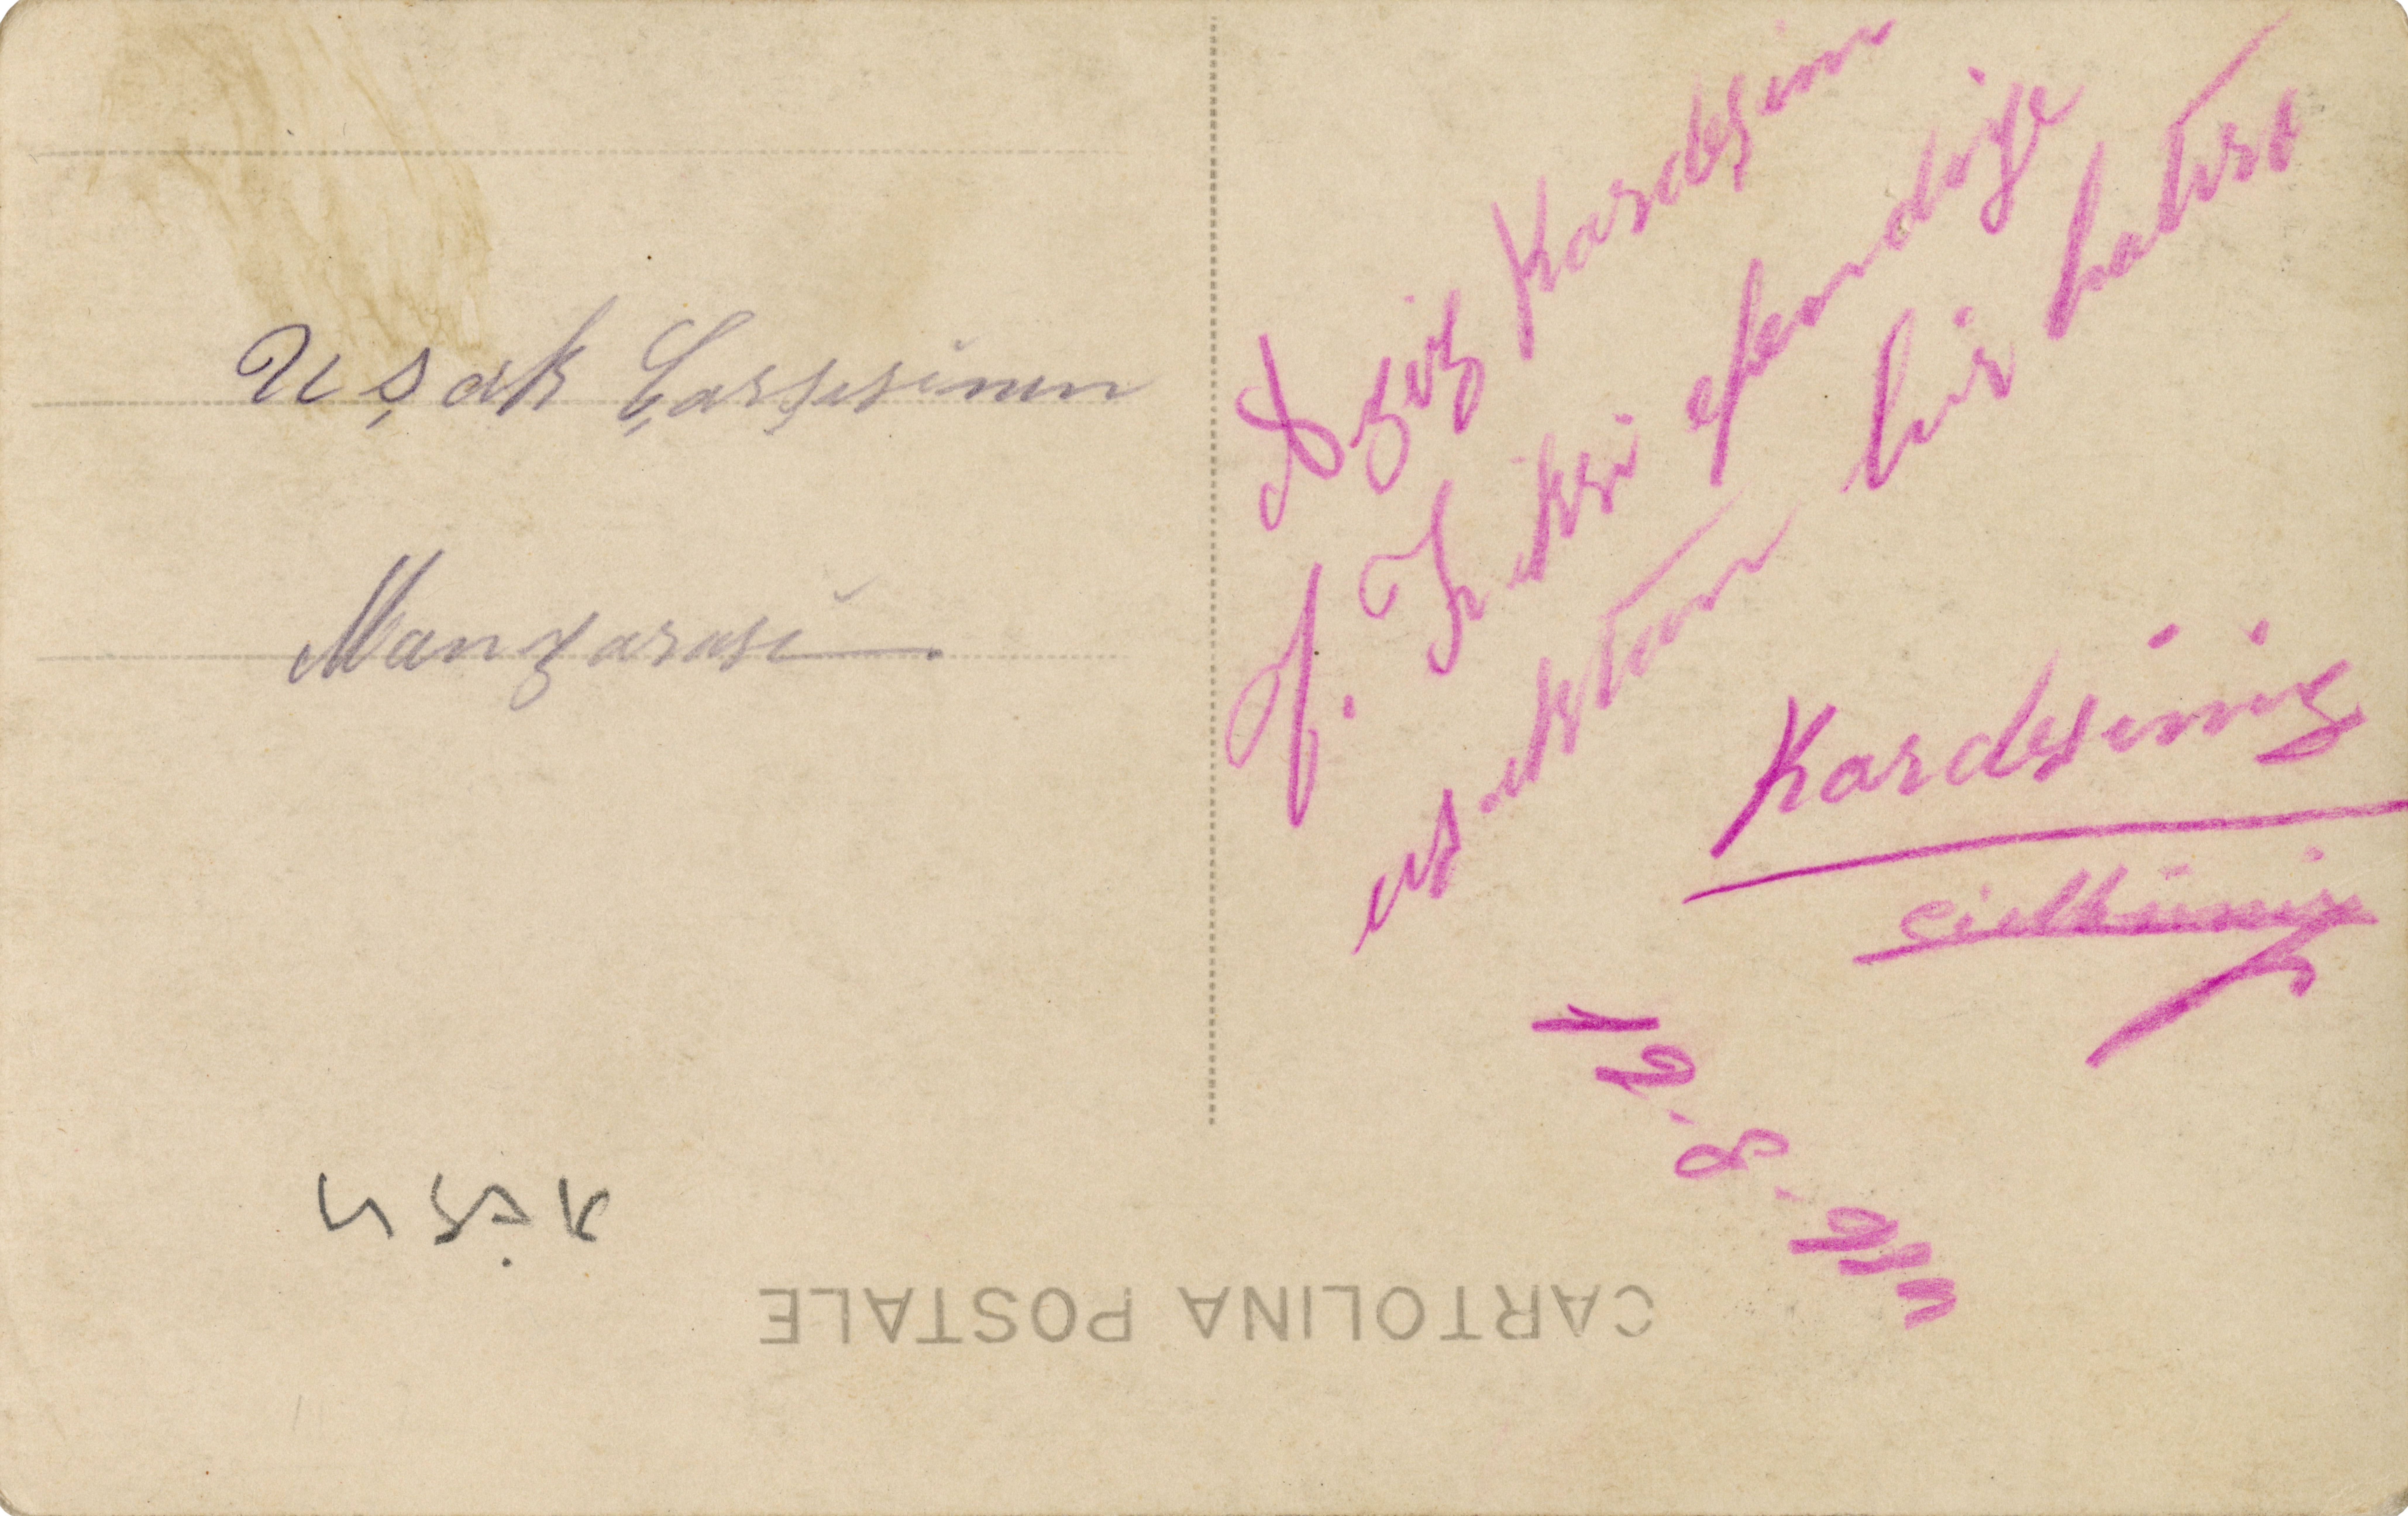 Uşak Çarşısının
Manzarası
Aziz Kardeşim
H. Zekri efendiye
uşaktan bir hatıra
Kardeşiniz
12-8-
Uşak
CARTOLINA POSTALE